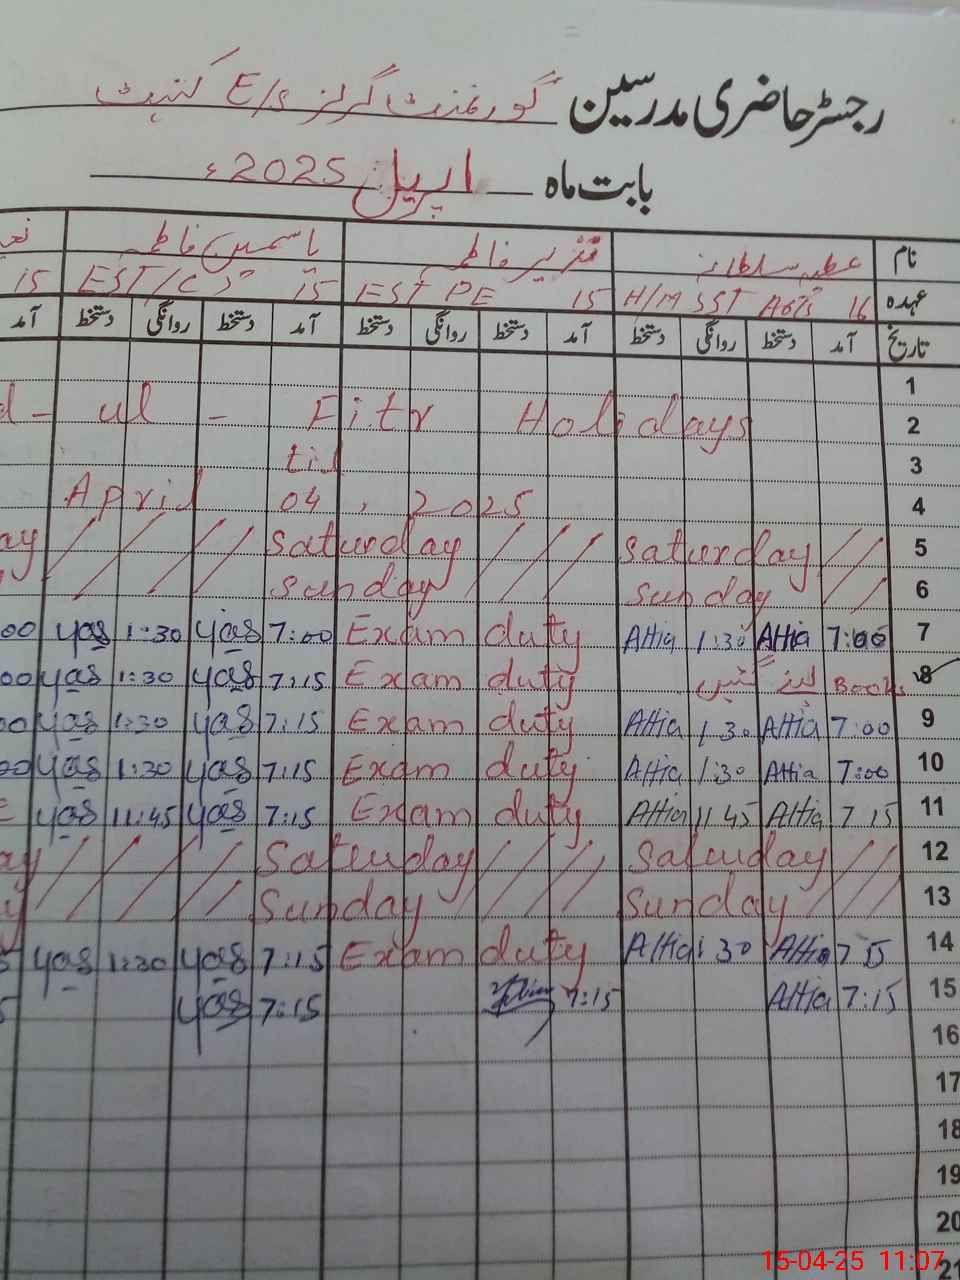 رجسٹر حاضری مدرسین گورنمنٹ گرلز E/S
بابت ماہ اپریل 2025ء
نام عطیہ سلطانہ فاطمہ یاسمین فاطمہ
عہدہ 16 H/M SST 15 EST PE 15 EST/C
تاریخ آمد دستخط روانگی دستخط آمد دستخط روانگی دستخط آمد دستخط روانگی دستخط آمد
1
d - ul - Fitr Holidays 2
till 3
April 04, 2025 4
ay / / / / Saturday / / / Saturday / / 5
/ / / / Sunday / / / Sunday / / 6
00 yas 1:30 yas 7:00 Exam duty Attia 1:30 Attia 7:00 7
00 yas 1:30 yas 7:15 Exam duty Books 8
00 yas 1:30 yas 7:15 Exam duty Attia 1:30 Attia 7:00 9
00 yas 1:30 yas 7:15 Exam duty Attia 1:30 Attia 7:00 10
E yas 11:45 yas 7:15 Exam duty Attia 11 45 Attia 7 15 11
ay / / / / Saturday / / / Saturday / / 12
y / / / / Sunday / / / Sunday / / 13
5 yas 1:30 yas 7:15 Exam duty Attia 1:30 Attia 7 15 14
5 yas 7:15 7:15 Attia 7:15 15
16
17
18
19
20
21
15-04-25 11:07